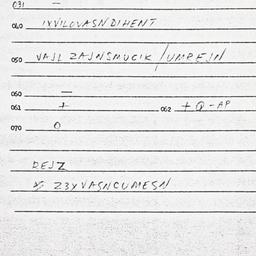 031 —
040 IXVILOVASNDIHENT
050 VAJL ZAJNSMUCIK/UMPEJN
060 —
061 + 062 + Q-AP
070 O
DEJZ
Z3XVASNCUMESN